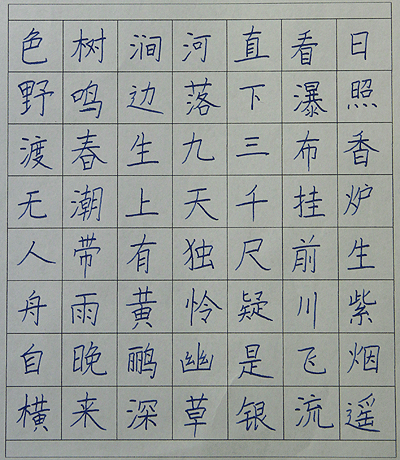 日照香炉生紫烟遥
看瀑布挂前川飞流
直下三千尺疑是银
河落九天独怜幽草
涧边生上有黄鹂深
树鸣春潮带雨晚来
色野渡无人舟自横